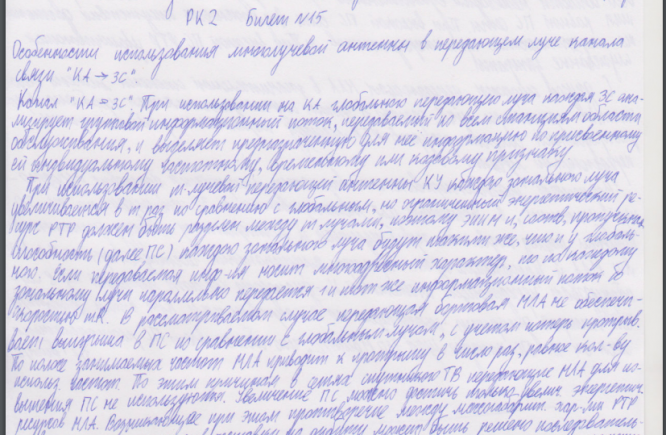 РК2 Билет №15
Особенности использования многолучевой антенны в передающем луче канала
связи "КА → ЗС".
Канал "КА = ЗС". При использовании на КА глобального передающего луча каждая ЗС ана-
лизирует групповой информационный поток, передаваемый ко всем станциям области
обслуживания, и выделяет предназначенную для нее информацию по присвоенному
ей индивидуальному частотному, временному или кодовому признаку.
При использовании m-лучевой передающей антенны КУ каждого зонального луча
увеличивается в m раз по сравнению с глобальным, но ограниченный энергетический ре-
сурс РТР должен быть разделен между m лучами, поэтому ЭИИМ и, соотв, пропускная
способность (далее ПС) каждого зонального луча будут такими же, что и у глобаль-
ного. Если передаваемая инф-ия носит многоадресный характер, то по каждому
зональному лучу параллельно передается 1 и тот же информационный поток со
скоростью В рассматриваемом случае передающая бортовая МЛА не обеспечи-
вает выигрыша в ПС по сравнению с глобальным лучом, с учетом потерь
По полосе занимаемых частот МЛА приводит к проигрышу в число раз, равное кол-ву
использ частот. По этим причинам в спутникового ТВ передающие МЛА для по-
вышения ПС не используются. Увеличение ПС можно достичь только увелич энергетич
ресурсов МЛА. Возникающее при этом противоречие между хар-ми РТР
может быть решено последователь-